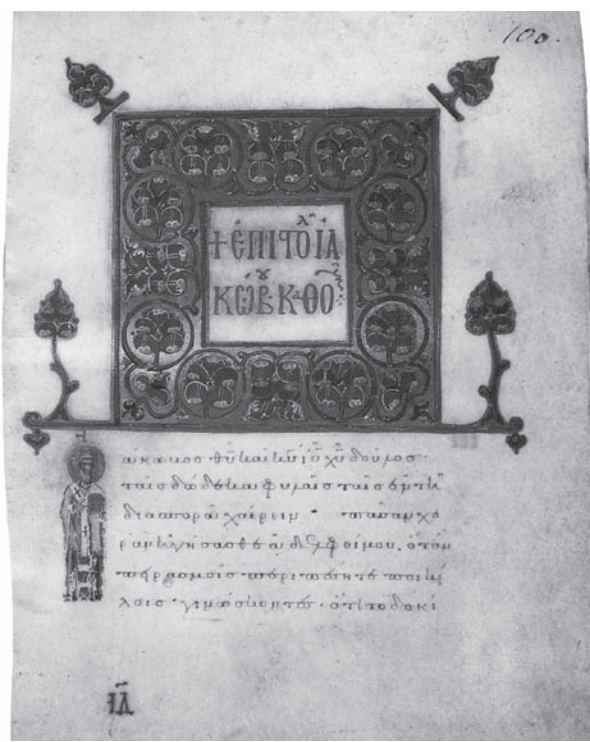 100.
+ ἘΠΙΤΟΛ ΙΑ
ΚΏΒΟΥ ΚΑΘΟ
άκωβος θ̅υ̅ καὶ κ̅υ̅ ι̅υ̅ χ̅υ̅ δοῦλος·
ταῖς δώδεκα φυλαῖς ταῖς ἐν τῇ
διασπορᾷ χαίρειν· πᾶσαν χα
ρὰν ἡγήσασθε ἀδελφοί μου, ὅταν
πειρασμοῖς περιπέσητε ποικί
λοις· γινώσκοντες· ὅτι τὸ δοκί